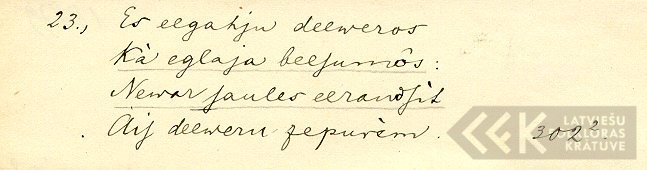 23., Es eegahju deeweros
Kà eglaja beesumôs:
Newar saules eeraudsit
Aij deeweru zepurèm. 302²
LATVIEŠU
FOLKLORAS
KRĀTUVE